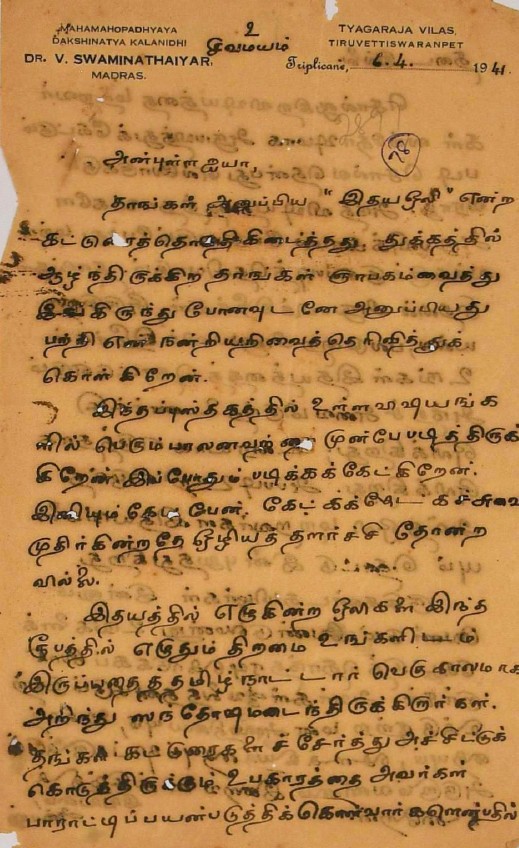 MAHAMAHOPADHYAYA
DAKSHINATYA KALANIDHI
DR. V. SWAMINATHAIYAR,
MADRAS.
உ
சிவமயம்
TYAGARAJA VILAS,
TIRUVETTISWARANPET
Triplicane, 6.4. 1941.
அன்புள்ள ஐயா,
தாங்கள் அனுப்பிய "இதய ஒலி" என்ற
கட்டுரைத்தொகுதி கிடைத்தது. துக்கத்தில்
ஆழ்ந்திருக்கிற தாங்கள் ஞாபகம்வைத்து
இங்கிருந்து போனவுடனே அனுப்பியது
பற்றி என் நன்றியறிவைத்தெரிவித்துக்
கொள்கிறேன்.
இந்தப்புஸ்தகத்தில் உள்ள விஷயங்க
ளில் பெரும்பாலனவற்றை முன்பே படித்திருக்
கிறேன். இப்போதும் படிக்கக்கேட்கிறேன்.
இனியும்கேட்பேன். கேட்கக்கேட்கச்சுவை
முதிர்கின்றதே ஒழியத் தளர்ச்சி தோன்ற
வில்லை.
இதயத்தில் எழுகின்ற ஒலிகளை இந்த
ரூபத்தில் எழுதும் திறமை உங்களிடம்
இருப்பதைத் தமிழ் நாட்டார் வெகு காலமாக
அறிந்து ஸந்தோஷமடைந்திருக்கிறார்கள்.
தங்கள் கட்டுரைகளைச் சேர்த்து அச்சிட்டுக்
கொடுத்திருக்கும் உபகாரத்தை அவர்கள்
பாராட்டிப் பயன்படுத்திக்கொள்வார்களென்பதில்